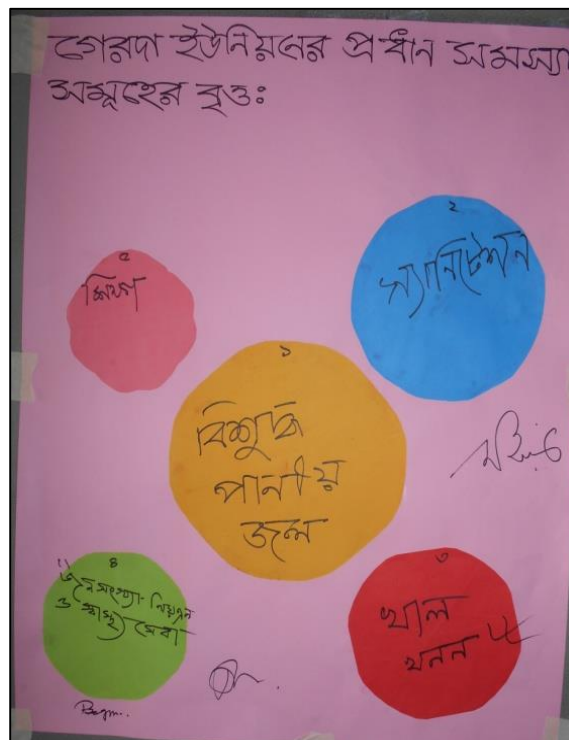 গেরদা ইউনিয়নের প্রধান সমস্যা
সমূহের বৃত্তঃ
৫
শিক্ষা
২
স্যানিটেশন
১
বিশুদ্ধ
পানীয়
জল
৪
জনসংখ্যা নিয়ন্ত্রন
ও স্বাস্থ্য সেবা
৩
খাল
খনন